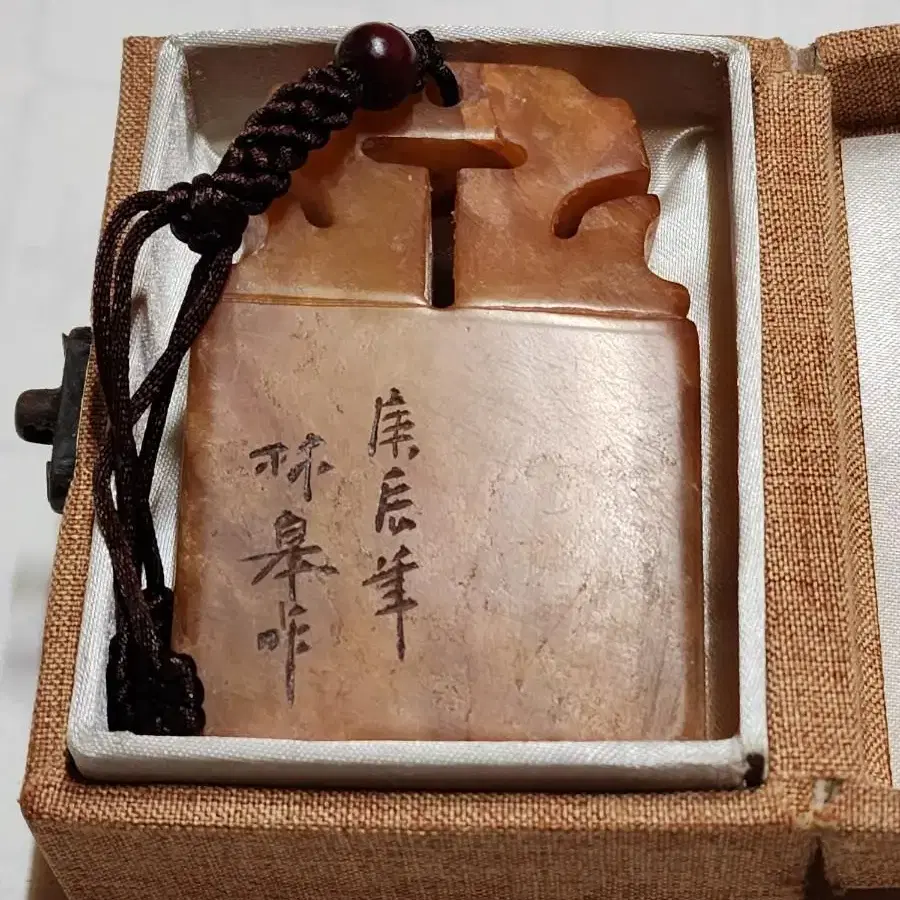 庚辰年
林皋作